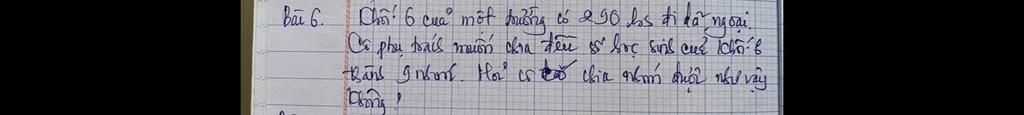 Bài 6. Khối 6 của một trường có 290 hs đi dã ngoại.
Cô phụ trách muốn chia đều số học sinh của khối 6
thành 9 nhóm. Hỏi có chia nhóm được như vậy
không?